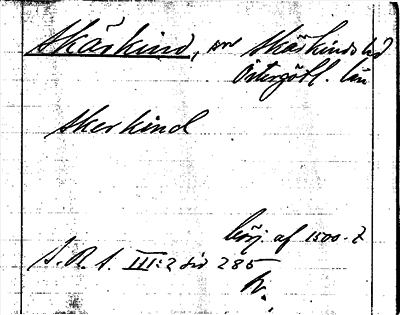 Skärkind, sn Skärkinds hd
Östergötl. län
Skerkind
börj. af 1500-t
S.R.A. III:2 sid 285